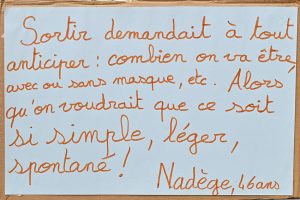 Sortir demandait à tout
anticiper : combien on va être,
avec ou sans masque, etc. Alors
qu'on voudrait que ce soit
si simple, léger,
spontané !
Nadège, 46 ans